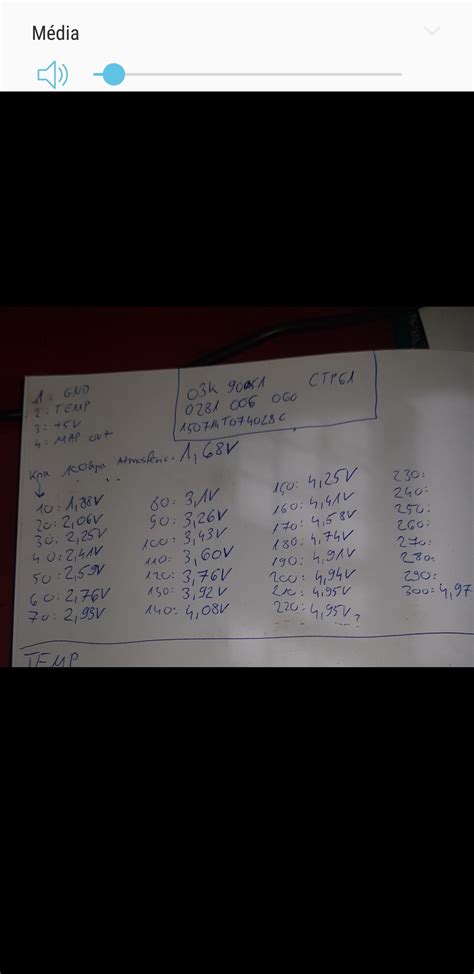 Média
1: GND
2: TEMP
3: +5V
4: MAP out
CTP61
0281 006 060
Kpa 100kpa Atmosferic: 1,68V
10: 1,88V
20: 2,06V
30: 2,25V
40: 2,41V
50: 2,59V
60: 2,76V
70: 2,93V
80: 3,1V
90: 3,26V
100: 3,43V
110: 3,60V
120: 3,76V
130: 3,92V
140: 4,08V
150: 4,25V
160: 4,41V
170: 4,58V
180: 4,74V
190: 4,91V
200: 4,94V
210: 4,95V
220: 4,95V?
230:
240:
250:
260:
270:
280:
290:
300: 4,97
TEMP